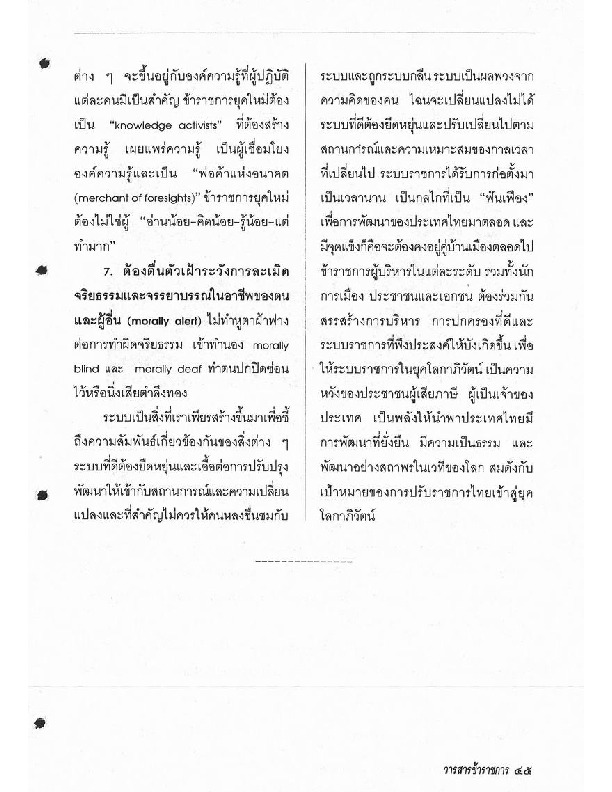 ต่าง ๆ จะขึ้นอยู่กับองค์ความรู้ที่ผู้ปฏิบัติ
แต่ละคนมีเป็นสำคัญ ข้าราชการยุคใหม่ต้อง
เป็น "knowledge activists" ที่ต้องสร้าง
ความรู้ เผยแพร่ความรู้ เป็นผู้เชื่อมโยง
องค์ความรู้และเป็น "พ่อค้าแห่งอนาคต
(merchant of foresights)" ข้าราชการยุคใหม่
ต้องไม่ใช่ผู้ "อ่านน้อย-คิดน้อย-รู้น้อย-แต่
ทำมาก"
7. ต้องตื่นตัวเฝ้าระวังการละเมิด
จริยธรรมและจรรยาบรรณในอาชีพของตน
และผู้อื่น (morally alert) ไม่ทำหูตาฝ้าฟาง
ต่อการทำผิดจริยธรรม เข้าทำนอง morally
blind และ morally deaf ทำตนปกปิดซ่อน
ไว้หรือนิ่งเสียตำลึงทอง
ระบบเป็นสิ่งที่เราเพียรสร้างขึ้นมาเพื่อชี้
ถึงความสัมพันธ์เกี่ยวข้องกันของสิ่งต่าง ๆ
ระบบที่ดีต้องยืดหยุ่นและเอื้อต่อการปรับปรุง
พัฒนาให้เข้ากับสถานการณ์และความเปลี่ยน
แปลงและที่สำคัญไม่ควรให้คนหลงชื่นชมกับ
ระบบและถูกระบบกลืน ระบบเป็นผลพวงจาก
ความคิดของคน ไฉนจะเปลี่ยนแปลงไม่ได้
ระบบที่ดีต้องยืดหยุ่นและปรับเปลี่ยนไปตาม
สถานการณ์และความเหมาะสมของกาลเวลา
ที่เปลี่ยนไป ระบบราชการได้รับการก่อตั้งมา
เป็นเวลานาน เป็นกลไกที่เป็น "ฟันเฟือง"
เพื่อการพัฒนาของประเทศไทยมาตลอด และ
มีจุดแข็งก็คือจะต้องคงอยู่คู่บ้านเมืองตลอดไป
ข้าราชการผู้บริหารในแต่ละระดับ รวมทั้งนัก
การเมือง ประชาชนและเอกชน ต้องร่วมกัน
สรรสร้างการบริหาร การปกครองที่ดีและ
ระบบราชการที่พึงประสงค์ให้บังเกิดขึ้น เพื่อ
ให้ระบบราชการในยุคโลกาภิวัตน์ เป็นความ
หวังของประชาชนผู้เสียภาษี ผู้เป็นเจ้าของ
ประเทศ เป็นพลังให้นำพาประเทศไทยมี
การพัฒนาที่ยั่งยืน มีความเป็นธรรม และ
พัฒนาอย่างสถาพรในเวทีของโลก สมดังกับ
เป้าหมายของการปรับราชการไทยเข้าสู่ยุค
โลกาภิวัตน์
วารสารข้าราชการ ๔๕